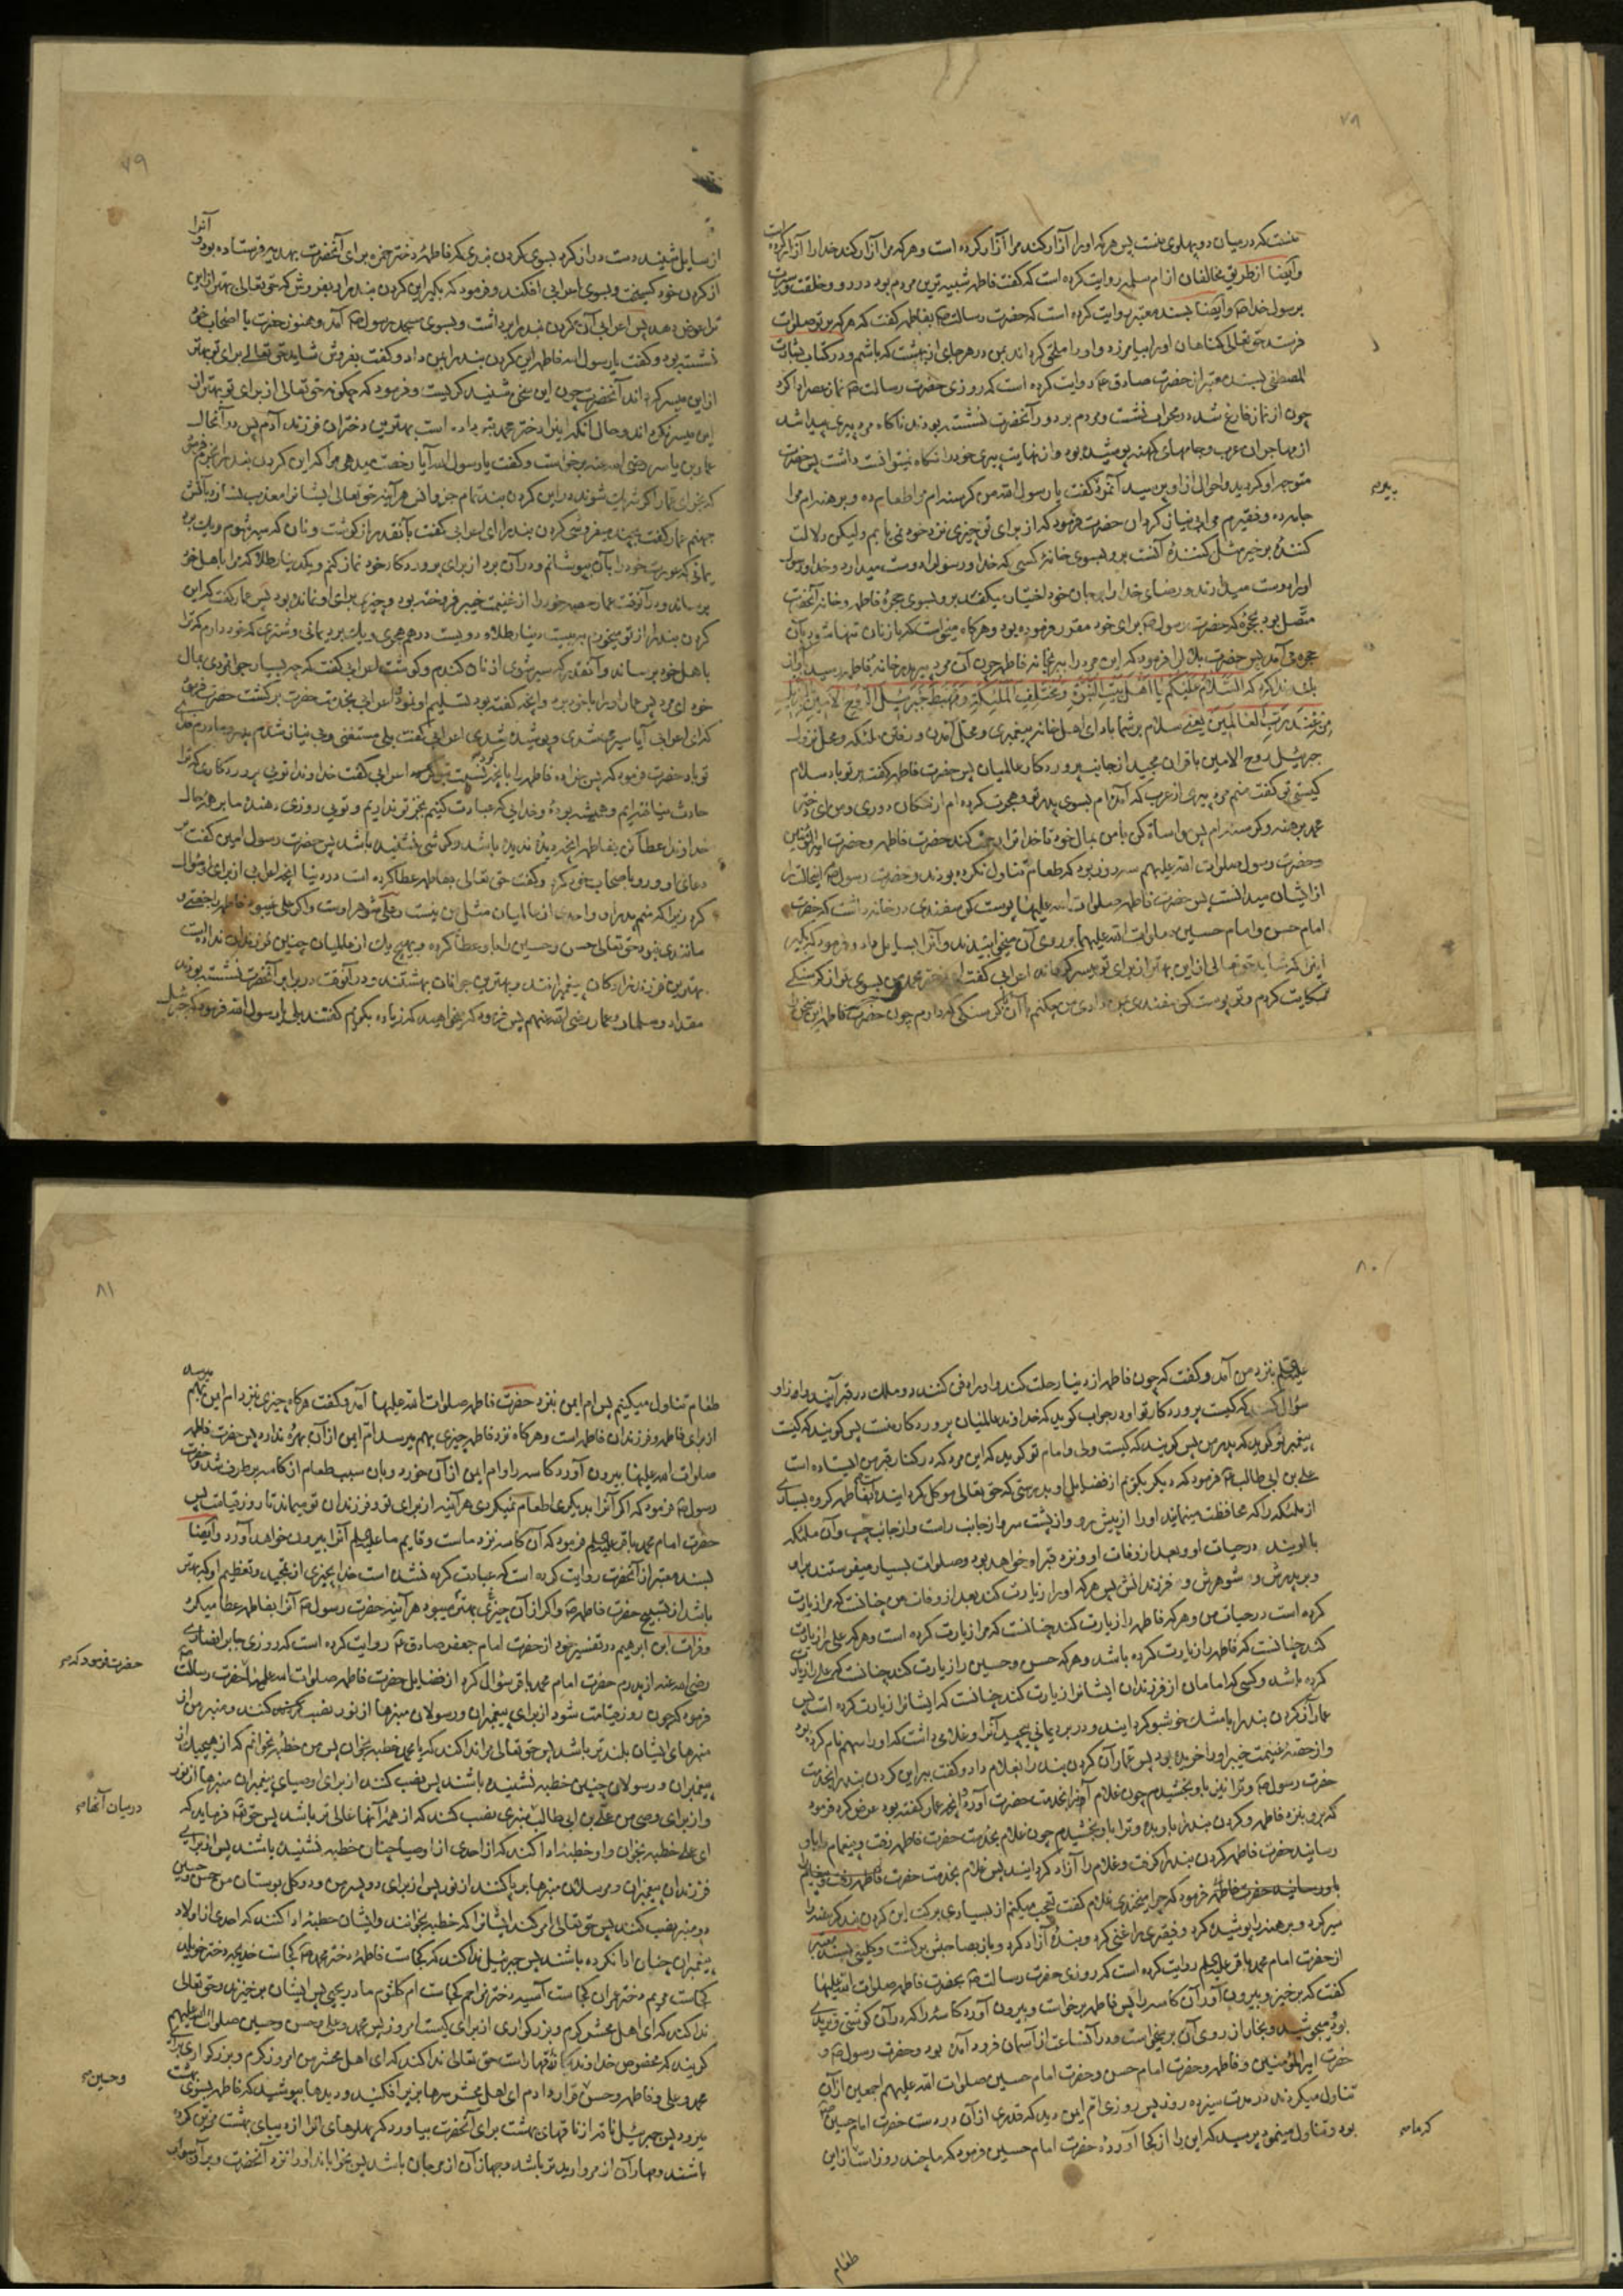 ۷۸
منست که در میان دو پهلوی منست پس هر که او را آزار کند مرا آزار کرده است و هر که مرا آزار کند خدا را آزار کرده است
وایضا از طریق مخالفان از ام سلمه روایت کرده است که گفت فاطمه شبیه ترین مردم بود در رو و خلقت وصورت
برسول خدا ص وایضا بسند معتبر روایت کرده است که حضرت رسالت ص بفاطمه گفت که هر که بر تو صلوات
فرستد حق تعالی گناهان او را بیامرزد و او را ملحق گرداند بمن در هر جای از بهشت که باشم ودر کتاب بشارت
المصطفی بسند معتبر از حضرت صادق ع روایت کرده است که روزی حضرت رسالت ص نماز عصر ادا کرد
چون از نماز فارغ شد در محراب نشست ومردم بر دور آنحضرت نشسته بودند ناگاه مرد پیری پیدا شد
از مهاجران عرب وجامهای کهنه پوشیده بود واز نهایت پیری خود را نگاه نمیتوانست داشت پس حضرت
متوجه او گردید واحوال از او پرسید آنمرد گفت یا رسول الله من گرسنه ام مرا طعام ده و برهنه ام مرا
جامه ده و فقیرم مرا بی نیاز گردان حضرت فرمود که از برای تو چیزی نزد خود نمی یابم ولیکن دلالت
کنندهٔ بر خیر مثل کنندهٔ آنست برو بسوی خانهٔ کسی که خدا و رسول را دوست میدارد وخدا ورسول
او را دوست میدارند و رضای خدا را بر جان خود اختیار میکند برو بسوی حجرهٔ فاطمه وخانه آنحضرت
متصل بود بحجرهٔ که حضرت رسول ص برای خود مقرر فرموده بود وهر گاه میخواست که از زنان تنها شود بآن
حجره می آمد پس حضرت بلال را فرمود که این مرد را ببر بخانه فاطمه چون آن مرد پیر بدر خانهٔ فاطمه رسید بآواز
بلند ندا کرد که السلام علیکم یا اهل بیت النبوة ومختلف الملئکة ومهبط جبرئیل الروح الامین بالتنزیل
من عند رب العالمین یعنی سلام بر شما باد ای اهل خانه پیغمبری ومحل آمدن ورفتن ملئکه ومحل نزول
جبرئیل روح الامین با قران مجید از جانب پروردگار عالمیان پس حضرت فاطمه گفت بر تو باد سلام
کیستی تو گفت منم مرد پیری از عرب که آمده ام بسوی پدر تو وهجرت کرده ام از مکان دوری ومن ای دختر
محمد برهنه وگرسنه ام پس مواساة کن با من بمال خود تا خدا ترا رحمت کند حضرت فاطمه وحضرت امیرالمؤمنین
وحضرت رسول صلوات الله علیهم سه روز بود که طعام تناول نکرده بودند وحضرت رسول ص اینحالت را
از ایشان میدانست پس حضرت فاطمه صلوات الله علیها پوست گوسفندی در خانه داشت که حضرت
امام حسن وامام حسین صلوات الله علیهما بر روی آن میخوابیدند وآنرا بسایل داد وفرمود که بگیر
این را که شاید حق تعالی از این بهتر از برای تو میسر گرداند اعرابی گفت ای دختر محمد من بسوی تو از گرسنگی
شکایت کردم وتو پوست گوسفندی بمن دادی من چکنم با آن گرسنگی که دارم چون حضرت فاطمه این سخن را
۷۹
از سایل شنید دست دراز کرد بسوی گردن بندی که فاطمه دختر حمزه برای آنحضرت بهدیه فرستاده بود و آنرا
از گردن خود گسیخت وبسوی اعرابی افکند وفرمود که بگیر این گردن بند را وبفروش که حق تعالی بهتر از این
ترا عوض دهد پس اعرابی آن گردن بند را برداشت وبسوی مسجد رسول ص آمد وهنوز حضرت با اصحاب خود
نشسته بود وگفت یا رسول الله فاطمه این گردن بند را بمن داد وگفت بفروش شاید حق تعالی برای تو بهتر
از این میسر گرداند آنحضرت چون این سخن شنید گریست وفرمود که چگونه حق تعالی از برای تو بهتر از
این میسر نگرداند وحال آنکه اینرا دختر محمد بتو داده است بهترین دختران فرزند آدم پس در آنحال
عمار بن یاسر رضی الله عنه برخواست وگفت یا رسول الله آیا رخصت میدهی مرا که این گردن بند را بخرم فرمود
که بخر ای عمار اگر شریک شوند در این گردن بند تمام جن وانس هر آینه حق تعالی ایشانرا معذب نسازد بآتش
جهنم عمار گفت بچند میفروشی گردن بند را ای اعرابی گفت بآنقدر از گوشت ونان که سیر شوم ویک برد
یمانی که عورت خود را بآن بپوشانم ودر آن برد از برای پروردگار خود نماز کنم ویک دینار طلا که مرا باهل خود
برساند ودر آنوقت عمار حصه خود را از غنیمت خیبر فروخته بود وچیزی برای او نمانده بود پس عمار گفت که این
گردن بند را از تو میخرم به بیست دینار طلا و دویست درهم هجری ویک برد یمانی وشتری که خود دارم که ترا
باهل خود برساند وآنقدر که سیر شوی از نان گندم وگوشت اعرابی گفت که چه بسیار جوانمردی بمال
خود ای مرد پس عمار او را با خود برد وآنچه گفته بود تسلیم او نمود واعرابی بخدمت حضرت برگشت حضرت فرمود
که ای اعرابی آیا سیر شدی وپوشیده شدی اعرابی گفت بلی مستغنی وبی نیاز شدم پدر ومادرم فدای
تو باد حضرت فرمود که پس جزا ده فاطمه را بآنچه نسبت بتو کرد اعرابی گفت خداوندا تویی پروردگاری که ترا
حادث نیافته ایم وهمیشه بودهٔ وخدایی که عبادت کنیم بجز تو نداریم وتویی روزی دهندهٔ ما بر هر حال
خداوندا عطا کن بفاطمه آنچه دیدهٔ ندیده باشد وگوشی نشنیده باشد پس حضرت رسول امین گفت بر
دعای او ورو باصحاب خود کرد وگفت حق تعالی بفاطمه عطا کرده است در دنیا آنچه اعرابی از برای او سؤال
کرد زیرا که منم پدر او واحدی از عالمیان مثل من نیست وعلی شوهر اوست واگر علی نمیبود فاطمه را جفتی و
مانندی نبود وحق تعالی حسن وحسین را باو عطا کرده وبهیچ یک از عالمیان چنین فرزندان نداده است
بهترین فرزندزادگان پیغمبرانند وبهترین جوانان بهشتند ودر آنوقت در برابر آنحضرت نشسته بودند
مقداد وسلمان وعمار رضی الله عنهم پس فرمود که میخواهید که زیاده بگویم گفتند بلی یا رسول الله فرمود که جبرئیل
۸۰
علیه السلم بنزد من آمد وگفت که چون فاطمه از دنیا رحلت کند واو را دفن کنند دو ملک در قبر آیند واز او
سؤال کنند که کیست پروردگار تو او در جواب گوید که خداوند عالمیان پروردگار منست پس گویند که کیست
پیغمبر تو گوید که پدر من پس گویند که کیست ولی وامام تو گوید که این مرد که در کنار قبر من ایستاده است
علی بن ابی طالب ع فرمود که دیگر بگویم از فضایل او بدرستی که حق تعالی موکل گردانیده است بفاطمه گروه بسیاری
از ملئکه را که محافظت مینمایند او را از پیش رو واز پشت سر واز جانب راست واز جانب چپ وآن ملئکه
با اویند در حیات او وبعد از وفات او ونزد قبر او خواهند بود وصلوات بسیار میفرستند بر او
وبر پدرش و شوهرش و فرزندانش پس هر که او را زیارت کند بعد از وفات من چنانست که مرا زیارت
کرده است در حیات من وهر که فاطمه را زیارت کند چنانست که مرا زیارت کرده است وهر که علی را زیارت
کند چنانست که فاطمه را زیارت کرده باشد وهر که حسن وحسین را زیارت کند چنانست که علی را زیارت
کرده باشد وکسی که امامان از فرزندان ایشانرا زیارت کند چنانست که ایشانرا زیارت کرده است پس
عمار آن گردن بند را با مشک خوشبو گردانید ودر برد یمانی پیچید آنرا وغلامی داشت که او را سهم نام کرده بود
واز حصهٔ غنیمت خیبر او را خریده بود پس عمار آن گردن بند را بغلام داد وگفت ببر این گردن بند را بخدمت
حضرت رسول ص وترا نیز باو بخشیدم چون غلام آنرا بخدمت حضرت آورد وآنچه عمار گفته بود عرض کرد فرمود
که برو بنزد فاطمه وگردن بند را باو بده وترا باو بخشیدم چون غلام بخدمت حضرت فاطمه رفت وپیغام را باو
رسانید حضرت فاطمه گردن بند را گرفت وغلام را آزاد گردانید پس غلام بخدمت حضرت فاطمه رفت وپیغام را
باو رسانید حضرت فاطمه فرمود که چرا میخندی غلام گفت تعجب میکنم از بسیاری برکت این گردن بند که گرسنه را
سیر کرد وبرهنه را پوشیده کرد وفقیری را غنی کرد وبندهٔ آزاد کرد وباز بصاحبش برگشت وکلینی بسند معتبر
از حضرت امام محمد باقر علیه السلم روایت کرده است که روزی حضرت رسالت ص بحضرت فاطمه صلوات الله علیها
گفت که برخیز وبیرون آور آن کاسه را پس فاطمه برخواست وبیرون آورد کاسهٔ را که در آن گوشتی وثریدی
بود میجوشید وبخار از روی آن بر میخواست ودر آنساعت از آسمان فرود آمده بود وحضرت رسول ص و
حضرت امیرالمؤمنین وفاطمه وحضرت امام حسن وحضرت امام حسین صلوات الله علیهم اجمعین از آن
تناول میکردند در مدت سیزده روز پس روزی ام ایمن دید که قدری از آن در دست حضرت امام حسین ع
بود وتناول مینمود پرسید که این را از کجا آوردهٔ حضرت امام حسین فرمود که ما چند روز است از این
که ما
طعام
۸۱
طعام تناول میکنیم پس ام ایمن بنزد حضرت فاطمه صلوات الله علیها آمد وگفت هر گاه چیزی بنزد ام ایمن بهم میرسد
از برای فاطمه وفرزندان فاطمه است وهر گاه نزد فاطمه چیزی بهم میرسد ام ایمن از آن بهره ندارد پس حضرت فاطمه
صلوات الله علیها بیرون آورد کاسه را وام ایمن از آن خورد وبآن سبب طعام از کاسه برطرف شد وحضرت
رسول ص فرمود که اگر آنرا بدیگری اطعام نمیکردی هر آینه از برای تو وفرزندان تو میماند تا روز قیامت پس
حضرت امام محمد باقر علیه السلم فرمود که آن کاسه نزد ماست وقایم ما علیه السلم آنرا بیرون خواهد آورد وایضا
بسند معتبر از آنحضرت روایت کرده است که عبادت کرده نشده است خدا بچیزی از تمجید وتعظیم او که بهتر
باشد از تسبیح حضرت فاطمه ع واگر از آن چیزی بهتر میبود هر آینه حضرت رسول ص آنرا بفاطمه عطا میکرد
وفرات ابن ابرهیم در تفسیر خود از حضرت امام جعفر صادق ع روایت کرده است که روزی جابر انصاری
رضی الله عنه از پدرم حضرت امام محمد باقر سؤال کرد از فضایل حضرت فاطمه صلوات الله علیها حضرت رسالت ص
حضرت فرمود که
فرمود که چون روز قیامت شود از برای پیغمبران ورسولان منبرها از نور نصب کنند ومنبر من از
منبرهای ایشان بلندتر باشد پس حق تعالی مرا ندا کند که یا محمد خطبه بخوان پس من خطبه بخوانم که از هیچیک از
پیغمبران ورسولان چنین خطبه نشنیده باشند پس نصب کنند از برای اوصیای پیغمبران منبرها از نور
واز برای وصی من علی بن ابی طالب منبری نصب کنند که از همهٔ آنها عالی تر باشد پس حق تعالی فرماید که
درمیان آنها
ای علی خطبه بخوان واو خطبهٔ ادا کند که از احدی از اوصیا چنان خطبه نشنیده باشند پس از برای
فرزندان پیغمبران ومرسلان منبرها برپا کنند از نور پس از برای دو پسر من ودو گل بوستان من حسن وحسین
دو منبر نصب کنند پس حق تعالی امر کند ایشانرا که خطبه بخوانند وایشان خطبهٔ ادا کنند که احدی از اولاد
پیغمبران چنان ادا نکرده باشند پس جبرئیل ندا کند که کجاست فاطمه دختر محمد ص کجاست خدیجه دختر خویلد
کجاست مریم دختر عمران کجاست آسیه دختر مزاحم کجاست ام کلثوم مادر یحیی پس ایشان برخیزند وحق تعالی
ندا کند که ای اهل محشر کرم وبزرگواری از برای کیست امروز پس محمد وعلی وحسن وحسین صلوات الله علیهم
گویند که مخصوص خداوند یگانهٔ قهار است حق تعالی ندا کند که ای اهل محشر من امروز کرم وبزرگواری برای
محمد وعلی وفاطمه وحسن قرار دادم ای اهل محشر سرها بزیر افکنید ودیدها بپوشید که فاطمه بسوی بهشت
وحسین
میرود پس جبرئیل ناقهٔ از ناقهای بهشت برای آنحضرت بیاورد که پهلوهای انرا از دیبای بهشت مزین کرده
باشند ومهار آن از مروارید تر باشد وجهاز آن از مرجان باشد پس بخواباند او را نزد آنحضرت وبر آن سوار